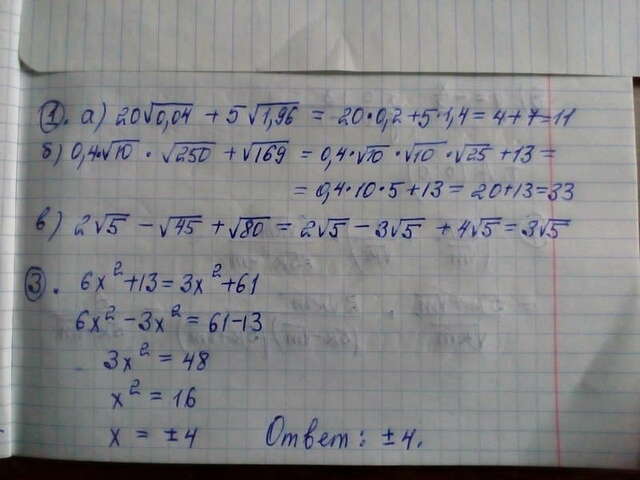 1. а) 20√0,04 + 5√1,96 = 20•0,2+5•1,4= 4+7=11
б) 0,4•√10 • √250 + √169 = 0,4•√10 •√10 •√25 +13 =
= 0,4•10•5+13 = 20+13=33
в) 2√5 - √45 + √80 = 2√5 - 3√5 + 4√5 = 3√5
3. 6x²+13=3x²+61
6x²-3x² = 61-13
3x² = 48
x² = 16
x = ±4 Ответ: ±4.